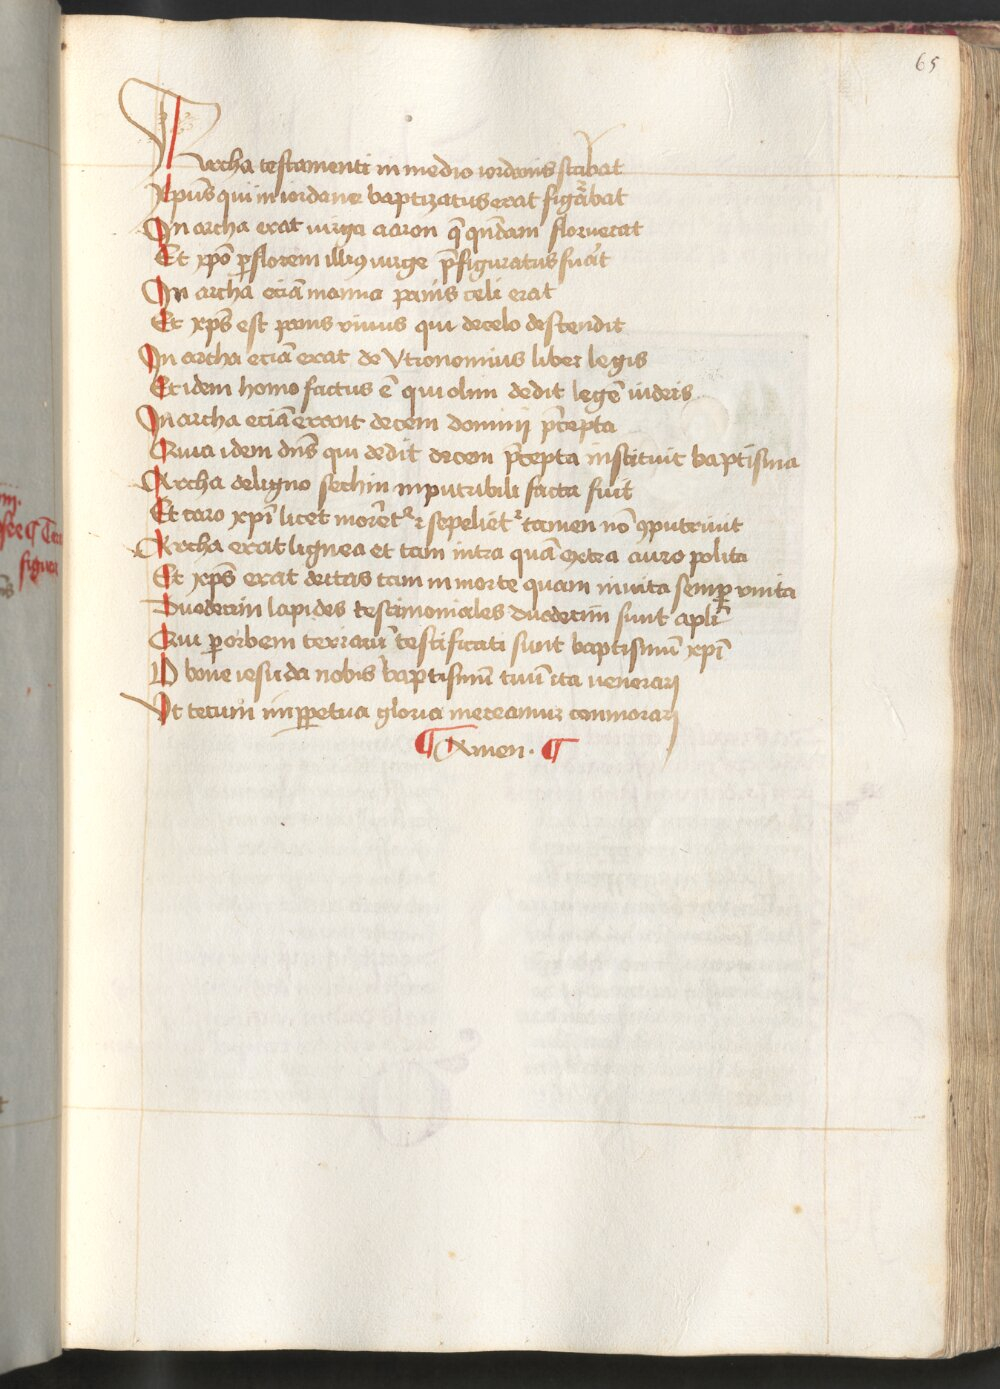 65
Archa testamenti in medio iordanis stabat
Xpūs qui in iordane baptizatus erat figᷓabat
In archa erat virga aaron q̄ qn̄dam floruerat
Et xp̄o ꝑ florem illiꝰ virge p̄figuratus fuit
In archa eciā manna panis celi erat
Et xp̄s est panis viuus qui de celo descendit
In archa eciā erat de Vtronomius liber legis
Et idem homo factus ē qui olim dedit legē iudeis
In archa eciā erant decem domini p̄cepta
Quia idem dn̄s qui dedit decem p̄cepta instituit baptisma
Archa de ligno sechin inputribili facta fuit
Et caro xp̄i licet moreretᷣ ⁊ sepelietᷣ tamen nō ꝯputruit
Archa erat lignea et tam intra quā extra auro polita
Et xp̄s erat deitas tam in morte quam in vita semꝑ vnita
Duodecim lapides testimoniales duodecim sunt apl̄i
Qui ꝑ orbem terrarū testificati sunt baptismū xp̄i
O bone iesu da nobis baptismū tuū ita venerarj
Vt tecum in ꝑpetua gloria mereamur commorarj
¶ Amen . ¶